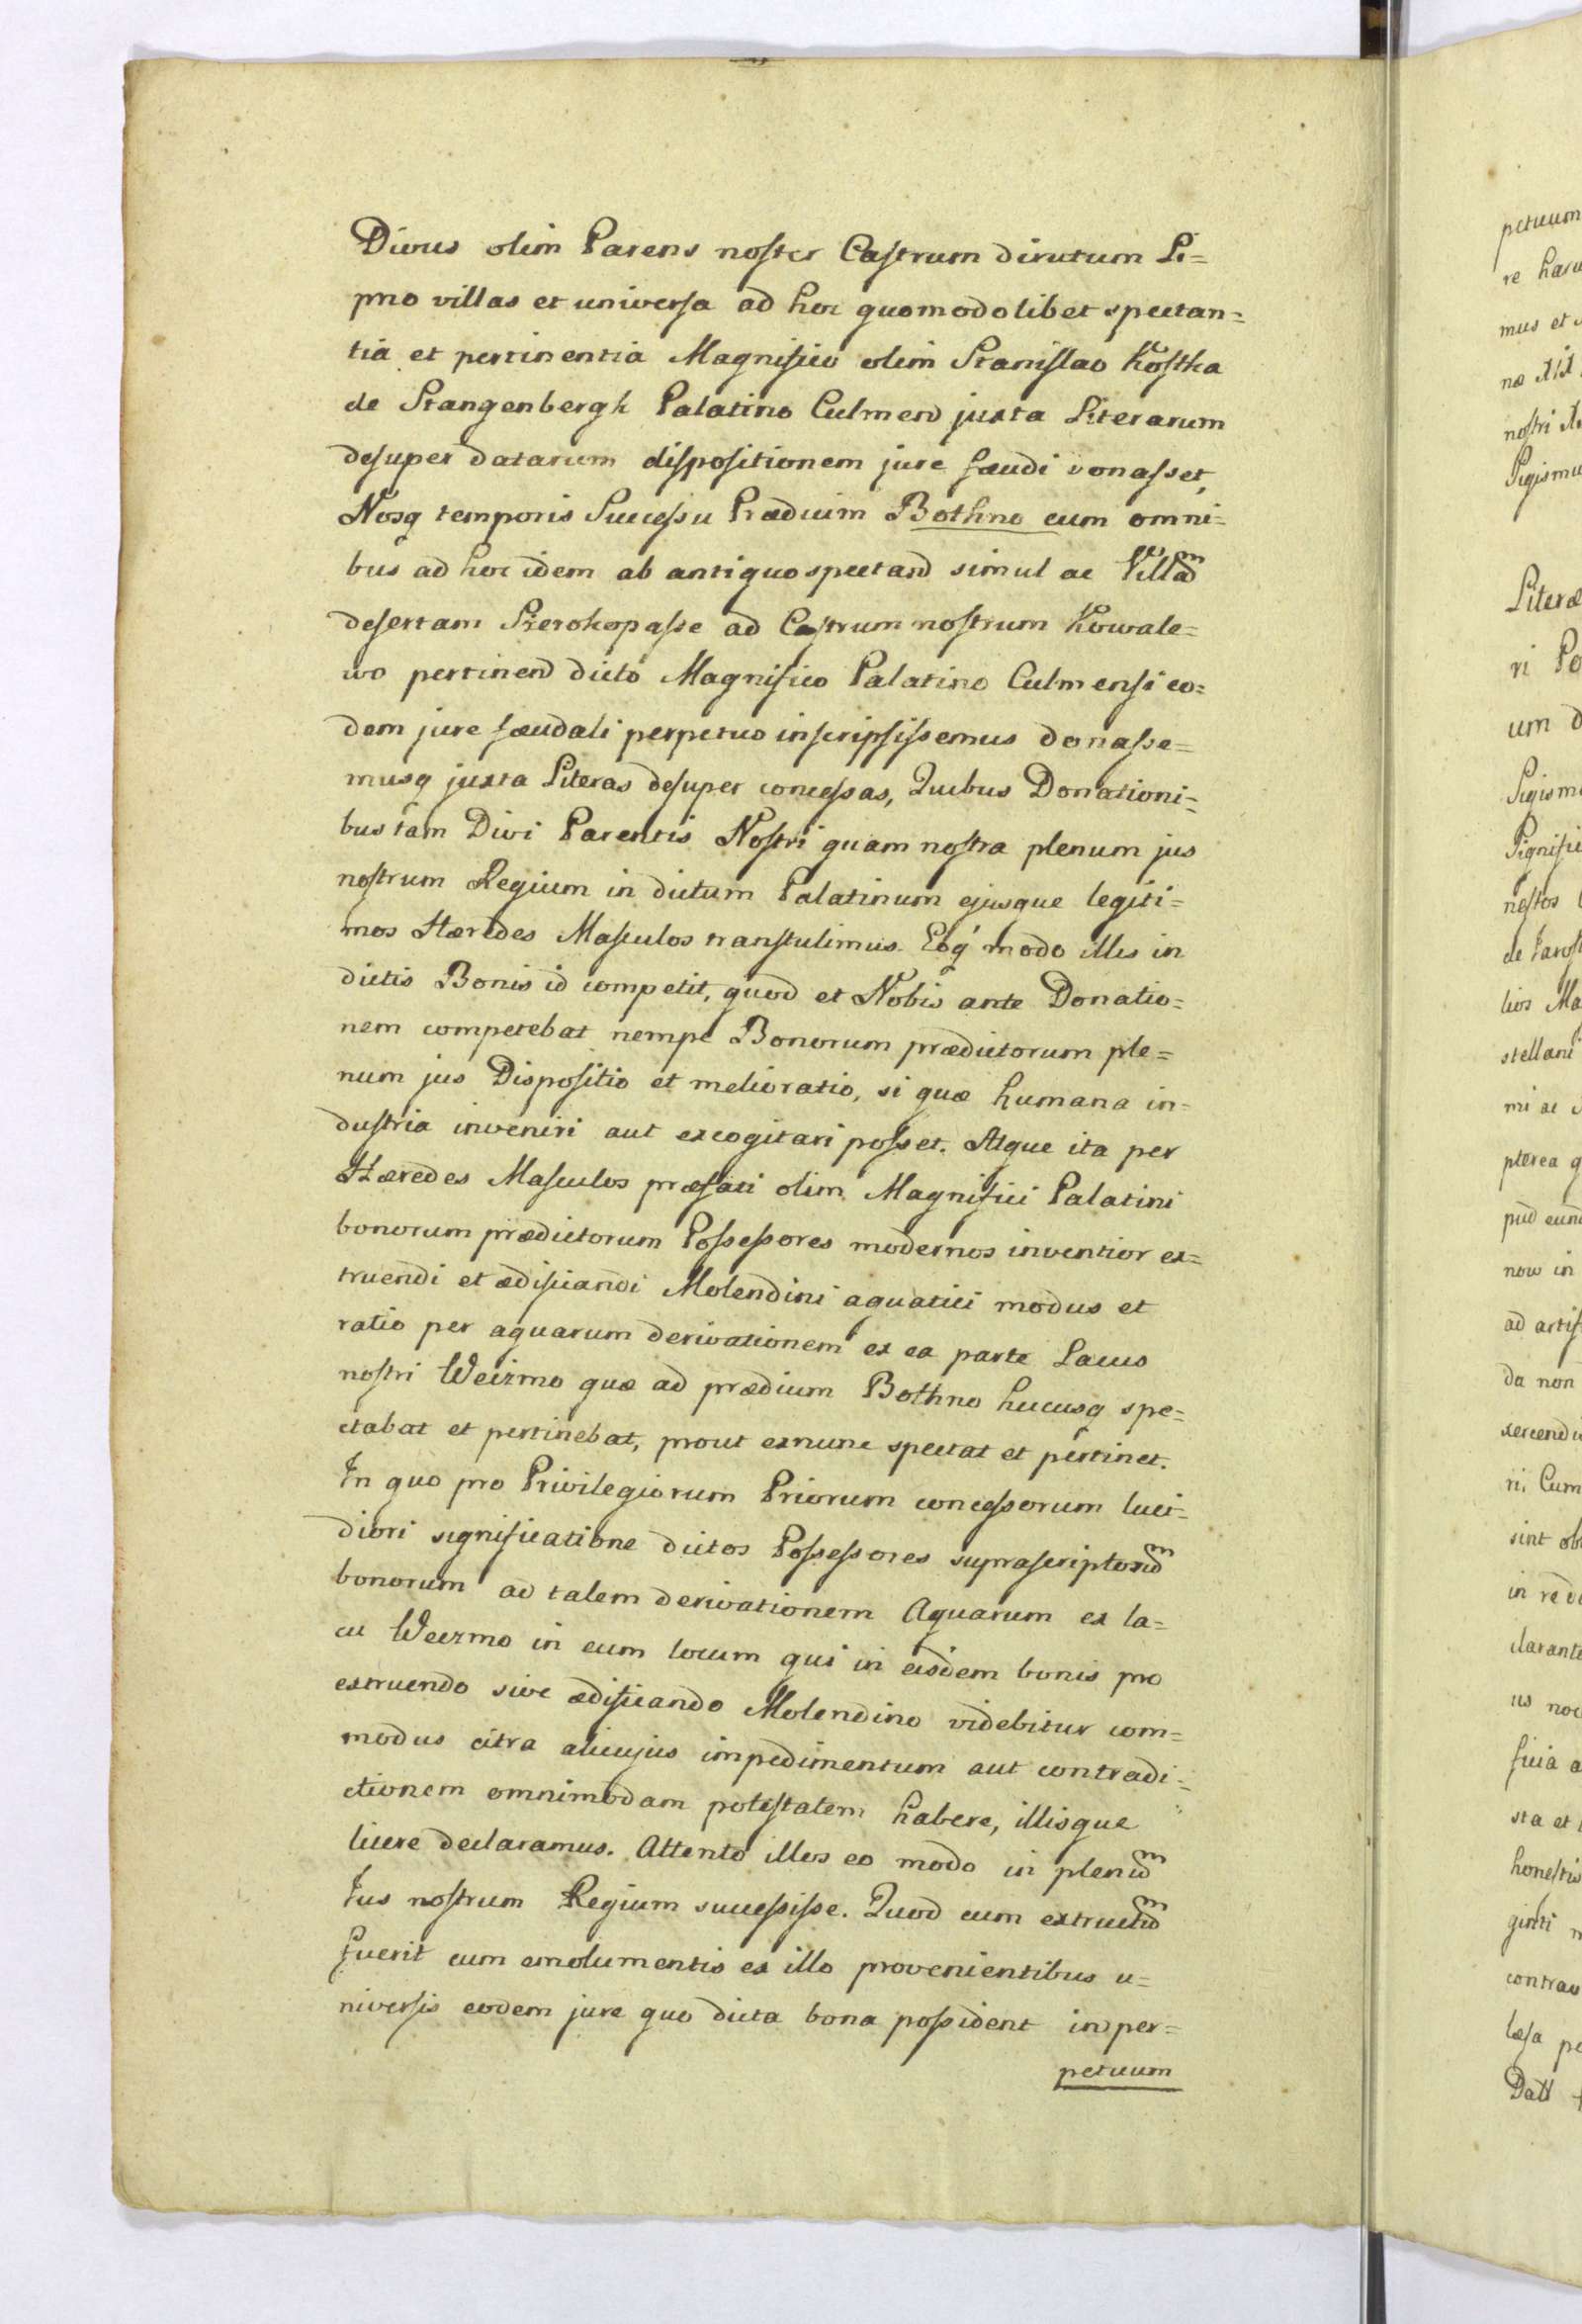 Divus olim Parens noster Castrum dirutum Li=
pno villas et universa ad hoc quomodolibet spectan=
tia et pertinentia Magnifico olim Stanislao Kostka
de Stangenbergk Palatino Culmen juxta Literarum
desuper datarum dispositionem jure fæudi donasset,
Nosq temporis Successu Prædium Bothno cum omni=
bus ad hoc idem ab antiquo spectand simul ac Villam
desertam Szerokopasse ad Castrum nostrum Kowale=
wo pertinend dicto Magnifico Palatino Culmensi eo=
dem jure fæudali perpetuo inscripsissemus donasse=
musq juxta Literas desuper concessas, Quibus Donationi=
bus tam Divi Parentis Nostri quam nostra plenum jus
nostrum Regium in dictum Palatinum ejusque legiti=
mos Hæredes Masculos transtulimus. Eoq modo illis in
dictis Bonis id competit, quod et Nobis ante Donatio=
nem competebat nempe Bonorum prædictorum ple=
num jus Dispositio et melioratio, si quæ humana in=
dustria inveniri aut excogitari posset. Atque ita per
Hæredes Masculos præfati olim Magnifici Palatini
bonorum prædictorum Possessores modernos inventior ex=
truendi et ædificandi Molendini aquatici modus et
ratio per aquarum derivationem ex ea parte Lacus
nostri Weizmo quæ ad prædium Bothno hucusq spe=
ctabat et pertinebat, prout exnunc spectat et pertinet.
In quo pro Privilegiorum Priorum concessorum luci=
diori significatione dictos Possessores suprascriptorum
bonorum ad talem derivationem Aquarum ex la=
cu Weizmo in eum locum qui in eisdem bonis pro
extruendo sive ædificando Molendino videbitur com=
modus citra alicujus impedimentum aut contradi=
ctionem omnimodam potestatem habere, illisque
licere declaramus. Attento illos eo modo in plenum
Jus nostrum Regium successisse. Quod cum extructum
fuerit cum emolumentis ex illo provenientibus u=
niversis eodem jure quo dicta bona possident in per=
petuum
petuum
re haru
mus et
næ
nostri
Sigismu
Literæ
ri Po
um d
Sigism
Signifi
nestos
de Tarost
lios Ma
stellani
mi ac
pterea q
pud eund
now in
ad artif
da non
xercend
ri, Cum
sint ob
in re
clarante
us noc
ficia a
sta et
honestis
ginti
contrav
læsa pe
Datt